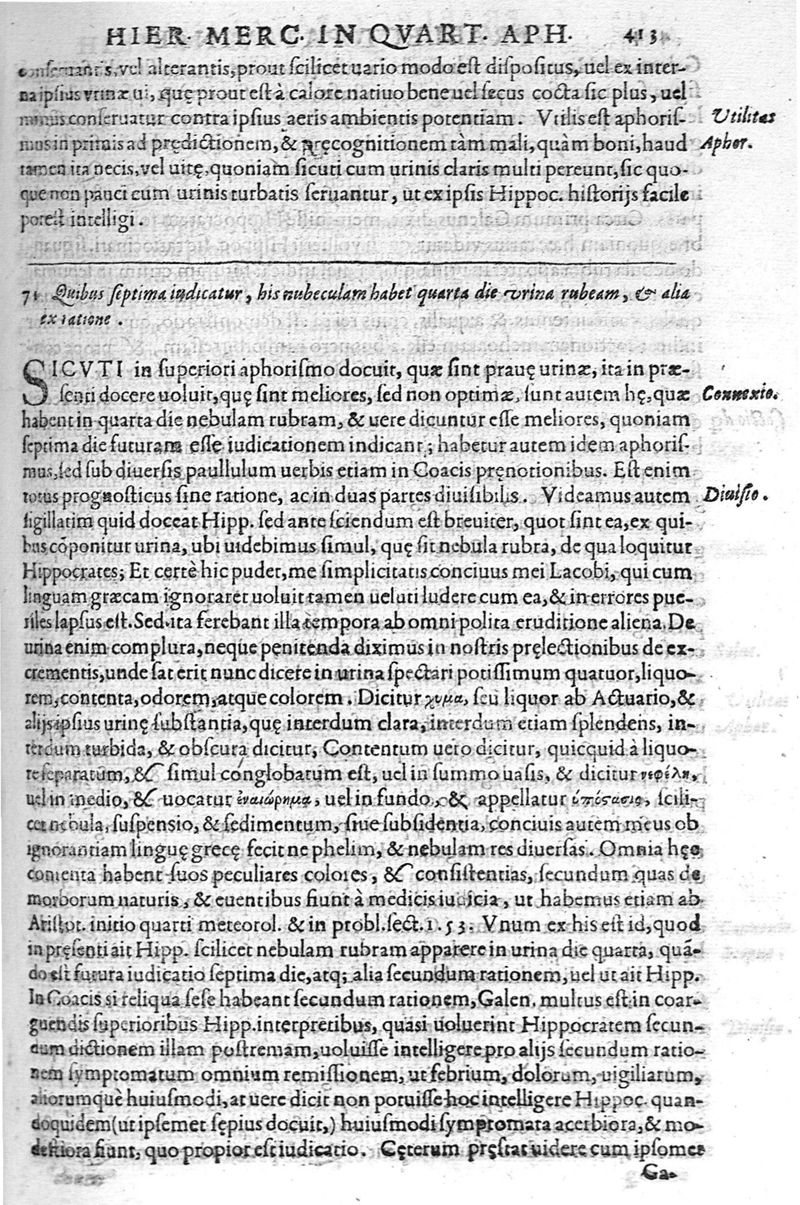 HIER. MERC. IN QVART. APH. 413
conseruantis, vel alterantis, prout scilicet uario modo est dispositus, uel ex inter-
na ipsius vrinæ ui, quę prout est à calore natiuo bene uel secus cocta sic plus, uel
minus conseruatur contra ipsius aeris ambientis potentiam. Vtilis est aphoris-
mus in primis ad prędictionem, & pręcognitionem tàm mali, quàm boni, haud
tamen ita necis, vel uitę, quoniam sicuti cum urinis claris multi pereunt, sic quo-
que non pauci cum urinis turbatis seruantur, ut ex ipsis Hippoc. historijs facile
potest intelligi.
Vtilitas
Aphor.
71 Quibus septima iudicatur, his nubeculam habet quarta die vrina rubeam, & alia
ex ratione.
SICVTI in superiori aphorismo docuit, quæ sint prauę urinæ, ita in præ-
senti docere uoluit, quę sint meliores, sed non optimæ, sunt autem hę, quæ
habent in quarta die nebulam rubram, & uere dicuntur esse meliores, quoniam
septima die futuram esse iudicationem indicant; habetur autem idem aphoris-
mus, sed sub diuersis paullulum uerbis etiam in Coacis pręnotionibus. Est enim
totus prognosticus sine ratione, ac in duas partes diuisibilis. Videamus autem
sigillatim quid doceat Hipp. sed ante sciendum est breuiter, quot sint ea, ex qui-
bus cõponitur urina, ubi uidebimus simul, quę sit nebula rubra, de qua loquitur
Hippocrates; Et certè hic pudet, me simplicitatis conciuus mei Iacobi, qui cum
linguam græcam ignoraret uoluit tamen ueluti ludere cum ea, & in errores pue-
riles lapsus est. Sed. ita ferebant illa tempora ab omni polita eruditione aliena. De
urina enim complura, neque pęnitenda diximus in nostris pręlectionibus de ex-
crementis, unde sat erit nunc dicere in urina spectari potissimum quatuor, liquo-
rem, contenta, odorem, atque colorem. Dicitur χυμα, seu liquor ab Actuario, &
alijs ipsius urinę substantia, quę interdum clara, interdum etiam splendens, in-
terdum turbida, & obscura dicitur, Contentum uero dicitur, quicquid à liquo-
re separatum, & simul conglobatum est, uel in summo uasis, & dicitur νεφέλη,
uel in medio, & uocatur ἐναιώρημα, uel in fundo, & appellatur ὑπόστασις, scili-
cet nebula, suspensio, & sedimentum, siue subsidentia, conciuis autem meus ob
ignorantiam linguę grecę fecit nephelim, & nebulam res diuersas. Omnia hęc
contenta habent suos peculiares colores, & consistentias, secundum quas de
morborum naturis, & euentibus fiunt à medicis iudicia, ut habemus etiam ab
Aristot. initio quarti meteorol. & in probl. sect. 1. 53. Vnum ex his est id, quod
in pręsenti ait Hipp. scilicet nebulam rubram apparere in urina die quarta, quã-
do est futura iudicatio septima die, atq; alia secundum rationem, uel ut ait Hipp.
In Coacis si reliqua sese habeant secundum rationem, Galen. multus est in coar-
guendis superioribus Hipp. interpretibus, quasi uoluerint Hippocratem secun-
dum dictionem illam postremam, uoluisse intelligere pro alijs secundum ratio-
nem symptomatum omnium remissionem, ut febrium, dolorum, uigiliarum,
aliorumquè huiusmodi, at uere dicit non potuisse hoc intelligere Hippoc. quan-
doquidem (ut ipsemet sępius docuit,) huiusmodi symptomata acerbiora, & mo-
destiora fiunt, quo propior est iudicatio. Cęterum pręstat uidere cum ipsomet
Connexio.
Diuisio.
Ga-